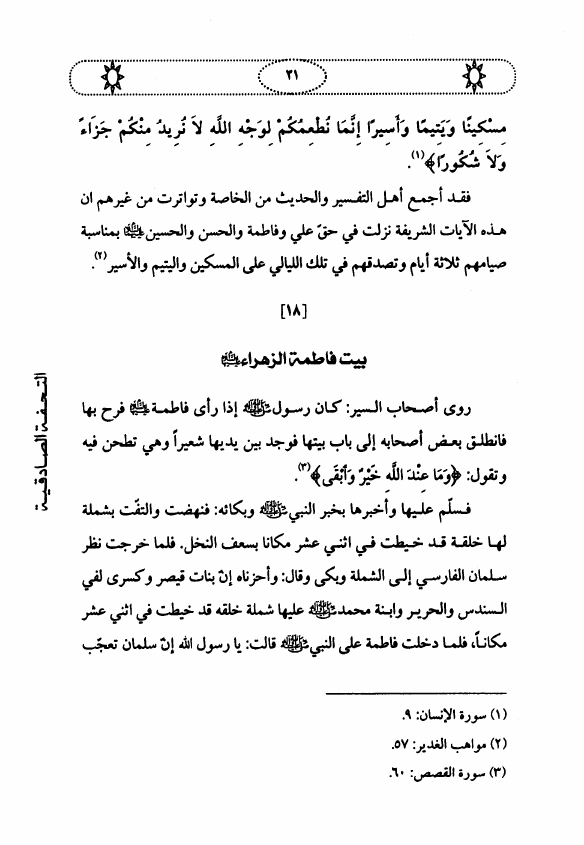 ٢١
مِسْكِينًا وَيَتِيمًا وَأَسِيرًا إِنَّمَا نُطْعِمُكُمْ لِوَجْهِ اللَّهِ لاَ نُرِيدُ مِنْكُمْ جَزَاءً
وَلاَ شُكُورًا﴾(١).
فقد أجمع أهل التفسير والحديث من الخاصة وتواترت من غيرهم ان
هذه الآيات الشريفة نزلت في حقّ علي وفاطمة والحسن والحسين بمناسبة
صيامهم ثلاثة أيام وتصدقهم في تلك الليالي على المسكين واليتيم والأسير(٢).
[١٨]
بيت فاطمة الزهراء
روى أصحاب السير: كان رسولﷺ إذا رأى فاطمة فرح بها
فانطلق بعض أصحابه إلى باب بيتها فوجد بين يديها شعيراً وهي تطحن فيه
وتقول: ﴿وَمَا عِنْدَ اللَّهِ خَيْرٌ وَأَبْقَى﴾(٣).
فسلّم عليها وأخبرها بخبر النبيﷺ وبكائه: فنهضت والتفّت بشملة
لها خلقة قد خيطت في اثني عشر مكانا بسعف النخل. فلما خرجت نظر
سلمان الفارسي إلى الشملة وبكى وقال: وأحزناه إنّ بنات قيصر وكسرى لفي
السندس والحرير وابنة محمدﷺ عليها شملة خلقه قد خيطت في اثني عشر
مكاناً، فلما دخلت فاطمة على النبيﷺ قالت: يا رسول الله إنّ سلمان تعجّب
(١) سورة الإنسان: ٩.
(٢) مواهب الغدير: ٥٧.
(٣) سورة القصص: ٦٠.
التحفة الصادقية